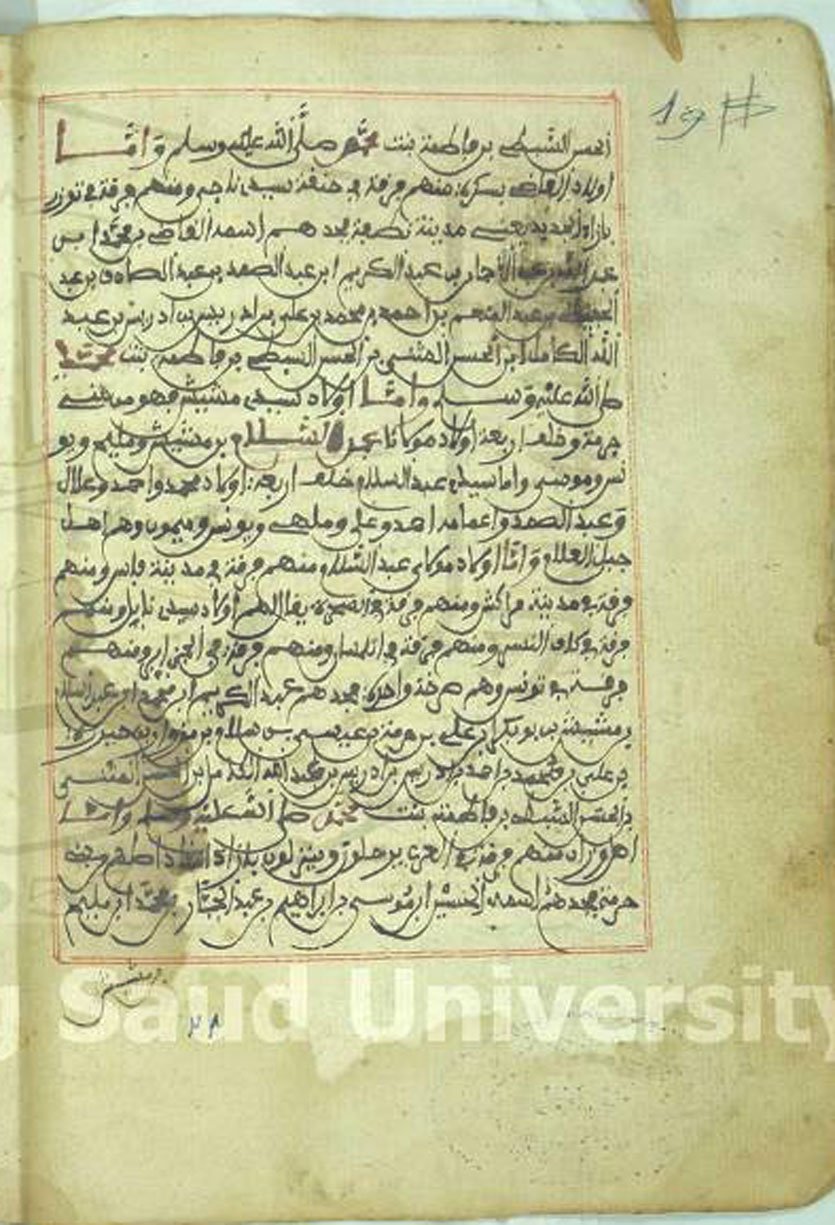 19
الحسن السبط بن فاطمة بنت محمد صلى الله عليه وسلم وأما
أولاد القاضي بسكرة منهم فرقة في خنقة سيدي ناجي ومنهم فرقة في توزر
مدينة جدهم اسمه القاضي بن محمد ابن
عبد الجبار بن عبد الكريم ابن عبد الصمد بن عبد الصادق بن عبد
بن عبد المنعم بن احمد بن محمد بن علي بن ادريس بن ادريس بن عبد
الله الكامل ابن الحسن المثنى بن الحسن السبط بن فاطمة بنت محمد
صلى الله عليه وسلم وأما أولاد سيدي مشيش فهو من بني
حرمة وخلف اربعة أولاد مولانا عبد السلام بن مشيش ومليح ويو
نس وموسى وأما سيدي عبد السلام وخلف اربعة أولاد محمد واحمد وعلال
وعبد الصمد واعمامه احمد وعلي وملهى ويونس وميمون وهم اهل
جبل العلام وأما أولاد مولاي عبد السلام ومنهم فرقة في مدينة فاس ومنهم
فرقة في مدينة مراكش ومنهم فرقة في يقال لهم أولاد سيدي نايل ومنهم
فرقة في ومنهم فرقة في اتلمسان ومنهم فرقة في الجزاير ومنهم
فرقة في تونس وهم فرقة واحدة جدهم عبد الكريم ابن محمد ابن عبد السلام
بن مشيش بن بوبكر بن علي بن حرمة بن عيسى بن سلام بن مزوار بن حيدرة
بن علي بن محمد بن احمد بن ادريس بن ادريس بن عبد الله الكامل بن الحسن المثنى
بن الحسن السبط بن فاطمة بنت محمد صلى الله عليه وسلم وأما
منهم فرقة في وينزلون بلاد
جدهم اسمه الحسين ابن موسى بن ابراهيم بن عبد الجبار بن محمد ابن مليح
بن مشيش
٢٨
Saud University